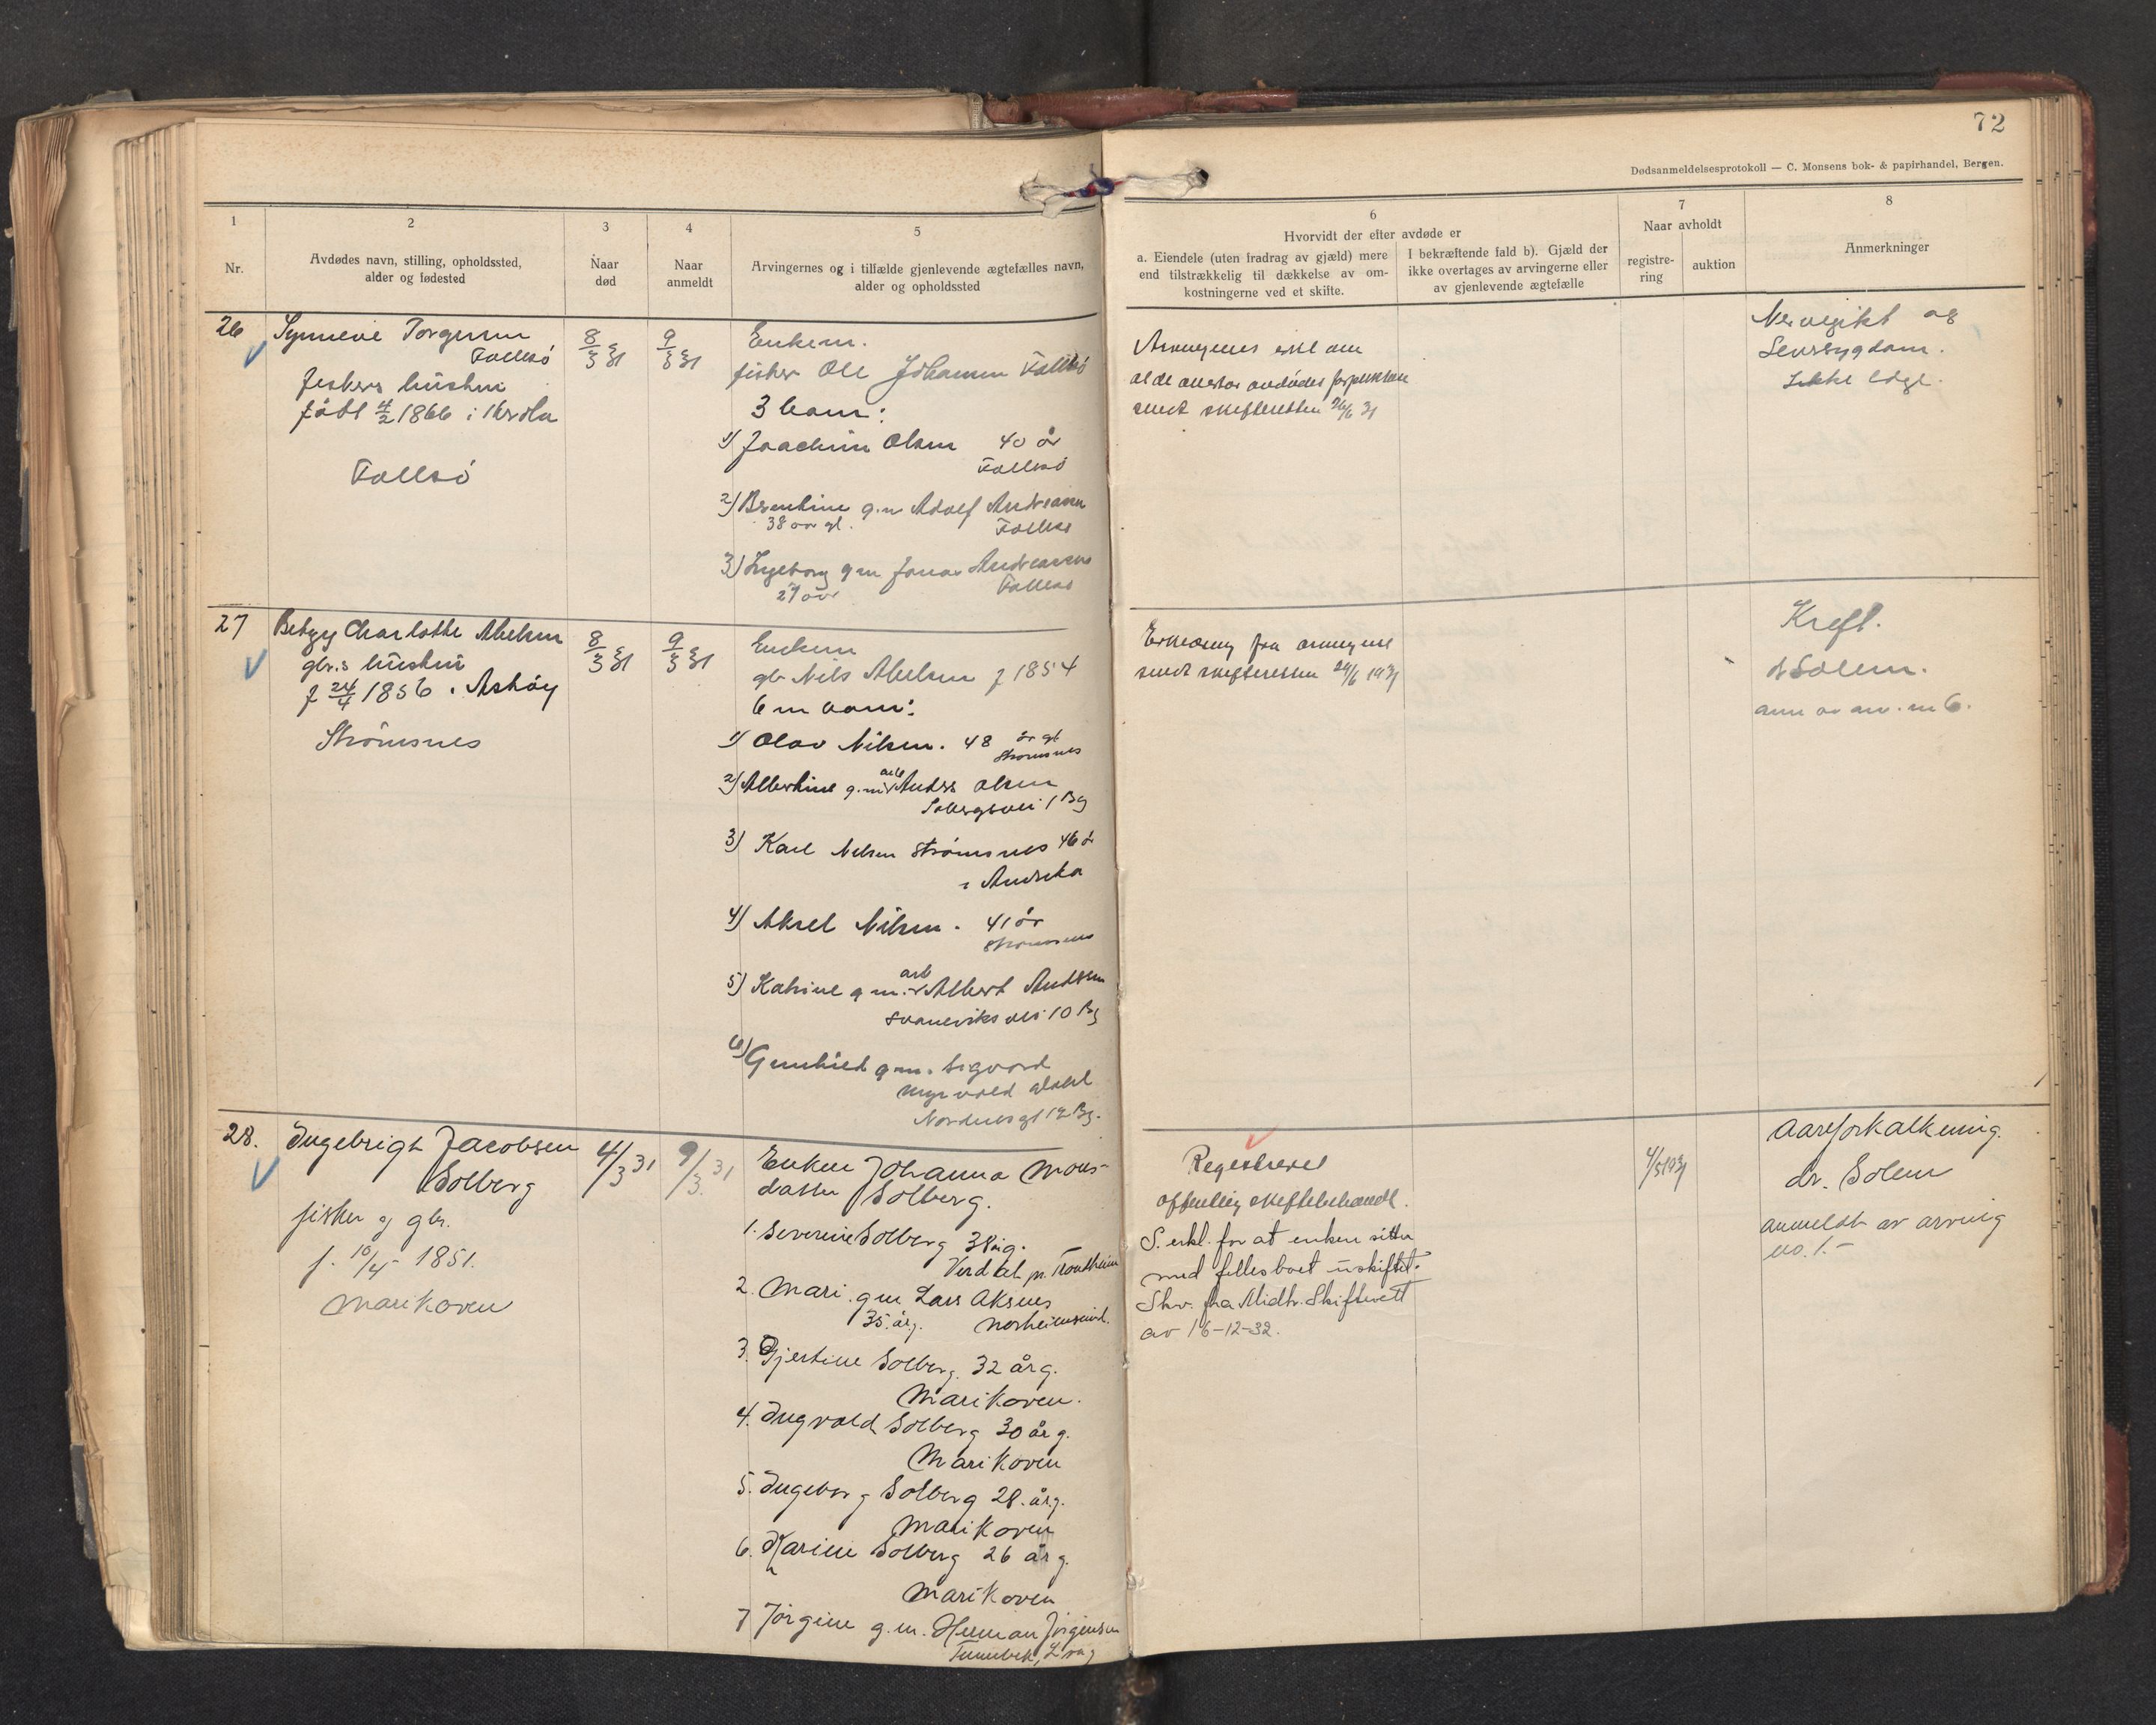 72
Dødsanmeldelsesprotokoll — C. Monsens bok- & papirhandel, Bergen.
1
Nr.
2
Avdødes navn, stilling, opholdssted,
alder og fødested
3
Naar
død
4
Naar
anmeldt
5
Arvingernes og i tilfælde gjenlevende ægtefælles navn,
alder og opholdssted
6
Hvorvidt der efter avdøde er
a. Eiendele (uten fradrag av gjæld) mere
end tilstrækkelig til dækkelse av om-
kostningerne ved et skifte.
I bekræftende fald b). Gjæld der
ikke overtages av arvingerne eller
av gjenlevende ægtefælle
7
Naar avholdt
registre-
ring
auktion
8
Anmerkninger
26
Synneve Torgersen
Follesø
fiskers hustru
født 4/2 1866 i
Follesø
8/3 31
9/3 31
Enkem.
fisker Ole Johannes Follesø
3 barn:
1) Joachim Olsen 40 år
Follesø
2) Berntine g.m Adolf Andreasen
38 aar gl. Follesø
3) Ingeborg g m Jonas Andreassen
27 aar Follesø
Arvingenes erkl om
at de overtar avdødes forpliktelser
sendt skifteretten 26/6 31
og
Ikke læge.
27
Betzy Charlotte Abelsen
gbr.s hustru
f 24/4 1856 i Askøy
Strømsnes
8/3 31
9/3 31
Enkem
gbr Nils Abelsen f 1854
6 m barn:
1) Olav Nilsen. 48 år gl
Strømsnes
2) Albertine g.m. arb Anders Olsen
1 Bg
3) Karl Nilsen Strømsnes 46 år
i Amerika
4) Aksel Nilsen. 41 år
Strømsnes
5) Katrine g m. arb Albert Andersen
Svaneviksvei 10 Bg
6) Gunhild g.m. Sigvard
Myrvold
Nordnesgt 12 Bg.
Erklæring fra arvingene
sendt skifteretten 24/6 1931
Kreft.
dr Solem.
anm av arv. nr 6.
28.
Ingebrigt Jacobsen
Solberg
fisker og gbr.
f. 10/4 - 1851.
Marikoven
4/3 31
9/3. 31
Enken Johanna Mons-
datter Solberg.
1. Severine Solberg 38 årg.
Verdal pr. Trondheim
2. Mari g m Lars Aksnes
35. årg. Norheimsund.
3. Gjertine Solberg. 32 årg.
Marikoven.
4. Ingvald Solberg 30 årg.
Marikoven
5. Ingeborg Solberg 28. årg.
Marikoven
6. Karine Solberg 26 årg.
Marikoven
7 Jørgine g.m. Herman Jørgensen
Registreret
offentlig skiftebehandl.
S. erkl. for at enken sitter
med fellesboet uskiftet.
Skr. fra Midhr. Skifterett
av 16-12-32.
4/5 1931
Aareforkalkning.
dr. Solem
anmeldt av arving
no. 1.-